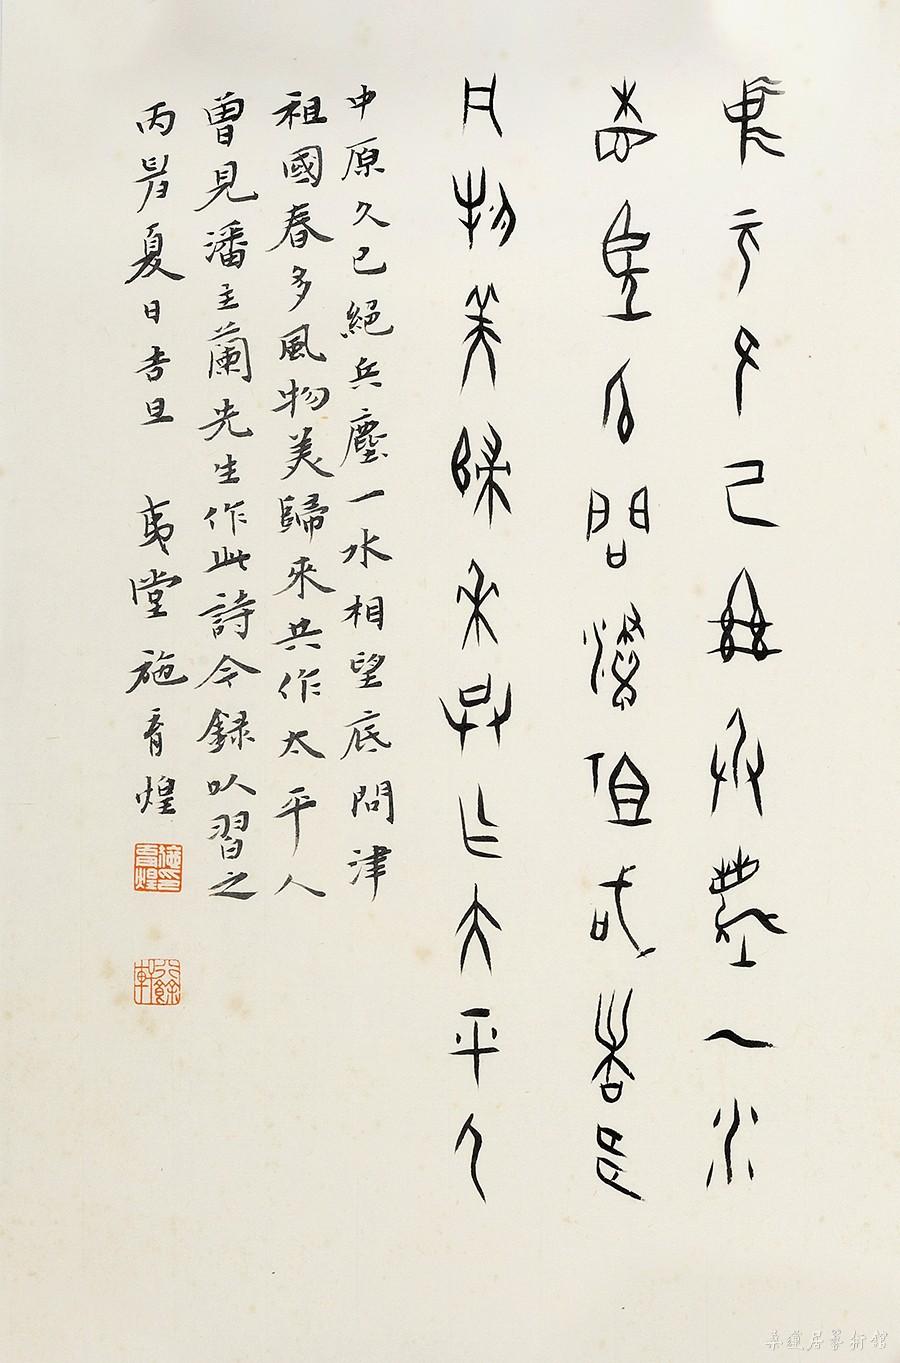 中原久已絕兵塵一水
相望底問津祖國春多
風物美歸來共作太平人
中原久已絕兵塵一水相望底問津
祖國春多風物美歸來共作太平人
曾見潘主蘭先生作此詩今録以習之
丙夏日吉旦 夷堂施煌
桑蓮居藝術館